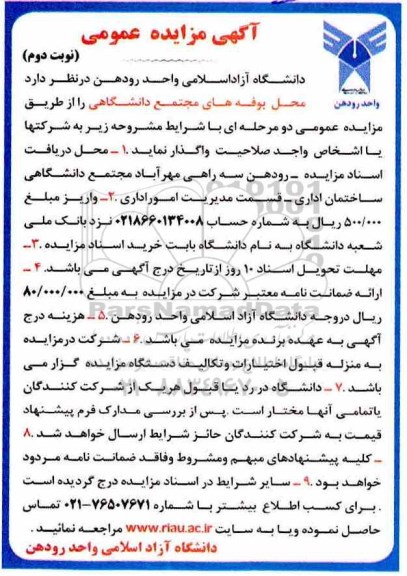 آگهی مزایده عمومی
(نوبت دوم)
واحد رودهن
دانشگاه آزاداسلامی واحد رودهن درنظر دارد
محل بوفه های مجتمع دانشگاهی را از طریق
مزایده عمومی دو مرحله ای با شرایط مشروحه زیر به شرکتها
یا اشخاص واجد صلاحیت واگذار نماید .۱ – محل دریافت
اسناد مزایده – رودهن سه راهی مهرآباد مجتمع دانشگاهی
ساختمان اداری – قسمت مدیریت اموراداری .۲– واریز مبلغ
۵۰۰/۰۰۰ ریال به شماره حساب ۰۲۱۸۶۶۰۱۳۴۰۰۸ نزد بانک ملی
شعبه دانشگاه به نام دانشگاه بابت خرید اسناد مزایده .۳–
مهلت تحویل اسناد ۱۰ روز ازتاریخ درج آگهی می باشد. ۴ –
ارائه ضمانت نامه معتبر شرکت در مزایده به مبلغ ۸۰/۰۰۰/۰۰۰
ریال دروجه دانشگاه آزاد اسلامی واحد رودهن .۵– هزینه درج
آگهی به عهده برنده مزایده می باشد .۶ – شرکت درمزایده
به منزله قبول اختیارات وتکالیف دستگاه مزایده گزار می
باشد .۷ – دانشگاه در رد یا قبول هریک از شرکت کنندگان
یاتمامی آنها مختار است .پس از بررسی مدارک فرم پیشنهاد
قیمت به شرکت کنندگان حائز شرایط ارسال خواهد شد .۸
– کلیه پیشنهادهای مبهم ومشروط وفاقد ضمانت نامه مردود
خواهد بود .۹ – سایر شرایط در اسناد مزایده درج گردیده است
. برای کسب اطلاع بیشتر با شماره ۷۶۵۰۷۶۷۱–۰۲۱ تماس
حاصل نموده ویا به سایت www.riau.ac.ir مراجعه نمائید .
دانشگاه آزاد اسلامی واحد رودهن